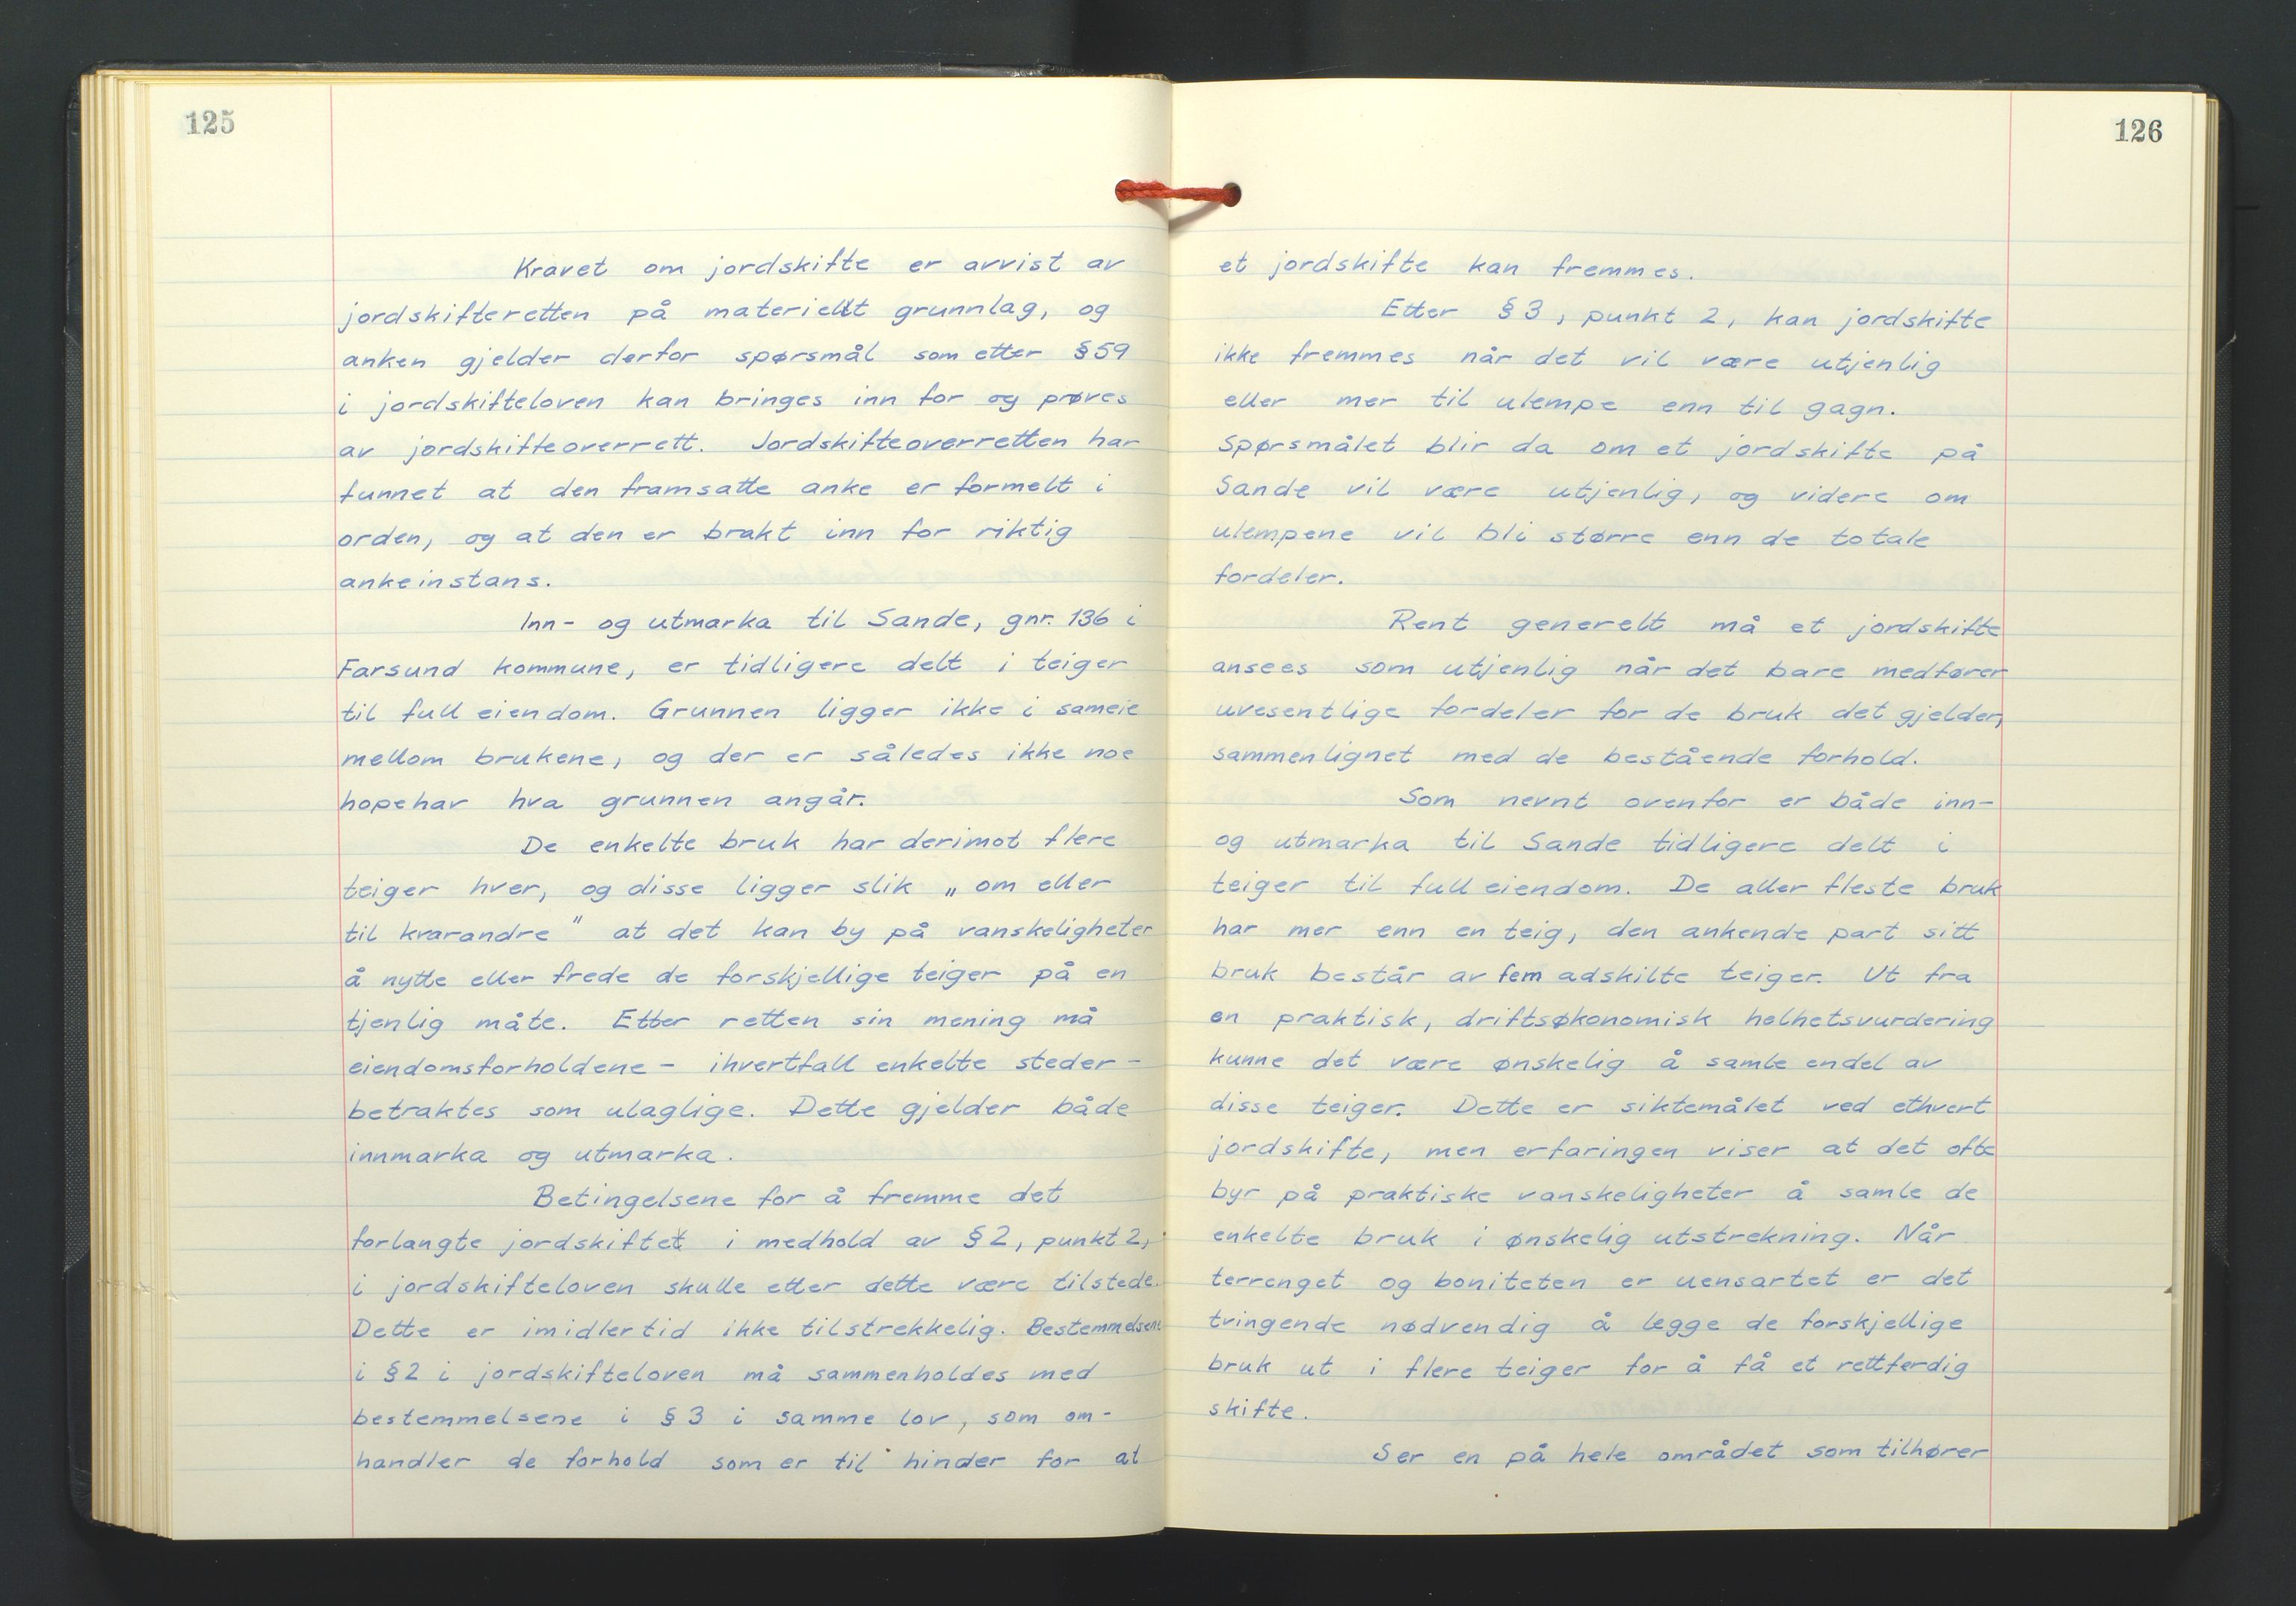 125
Kravet om jordskifte er avvist av
jordskifteretten på materiellt grunnlag, og
anken gjelder derfor spørsmål som etter § 59
i jordskifteloven kan bringes inn for og prøves
av jordskifteoverrett. Jordskifteoverretten har
funnet at den framsatte anke er formelt i
orden, og at den er brakt inn for riktig
ankeinstans.
Inn- og utmarka til Sande, gnr. 136 i
Farsund kommune, er tidligere delt i teiger
til full eiendom. Grunnen ligger ikke i sameie
mellom brukene, og der er således ikke noe
hopehav hva grunnen angår.
De enkelte bruk har derimot flere
teiger hver, og disse ligger slik „ om eller
til kvarandre " at det kan by på vanskeligheter
å nytte eller frede de forskjellige teiger på en
tjenlig måte. Etter retten sin mening må
eiendomsforholdene - ihvertfall enkelte steder -
betraktes som ulaglige. Dette gjelder både
innmarka og utmarka.
Betingelsene for å fremme det
forlangte jordskiftet i medhold av § 2, punkt 2,
i jordskifteloven skulle etter dette være tilstede.
Dette er imidlertid ikke tilstrekkelig. Bestemmelsene
i § 2 i jordskifteloven må sammenholdes med
bestemmelsene i § 3 i samme lov, som om-
handler de forhold som er til hinder for at
126
et jordskifte kan fremmes.
Etter § 3, punkt 2, kan jordskifte
ikke fremmes når det vil være utjenlig
eller mer til ulempe enn til gagn.
Spørsmålet blir da om et jordskifte på
Sande vil være utjenlig, og videre om
ulempene vil bli større enn de totale
fordeler.
Rent generelt må et jordskifte
ansees som utjenlig når det bare medfører
uvesentlige fordeler for de bruk det gjelder,
sammenlignet med de bestående forhold.
Som nevnt ovenfor er både inn-
og utmarka til Sande tidligere delt i
teiger til full eiendom. De aller fleste bruk
har mer enn en teig, den ankende part sitt
bruk består av fem adskilte teiger. Ut fra
en praktisk, driftsøkonomisk helhetsvurdering
kunne det være ønskelig å samle endel av
disse teiger. Dette er siktemålet ved ethvert
jordskifte, men erfaringen viser at det ofte
byr på praktiske vanskeligheter å samle de
enkelte bruk i ønskelig utstrekning. Når
terrenget og boniteten er uensartet er det
tvingende nødvendig å legge de forskjellige
bruk ut i flere teiger for å få et rettferdig
skifte.
Ser en på hele området som tilhører